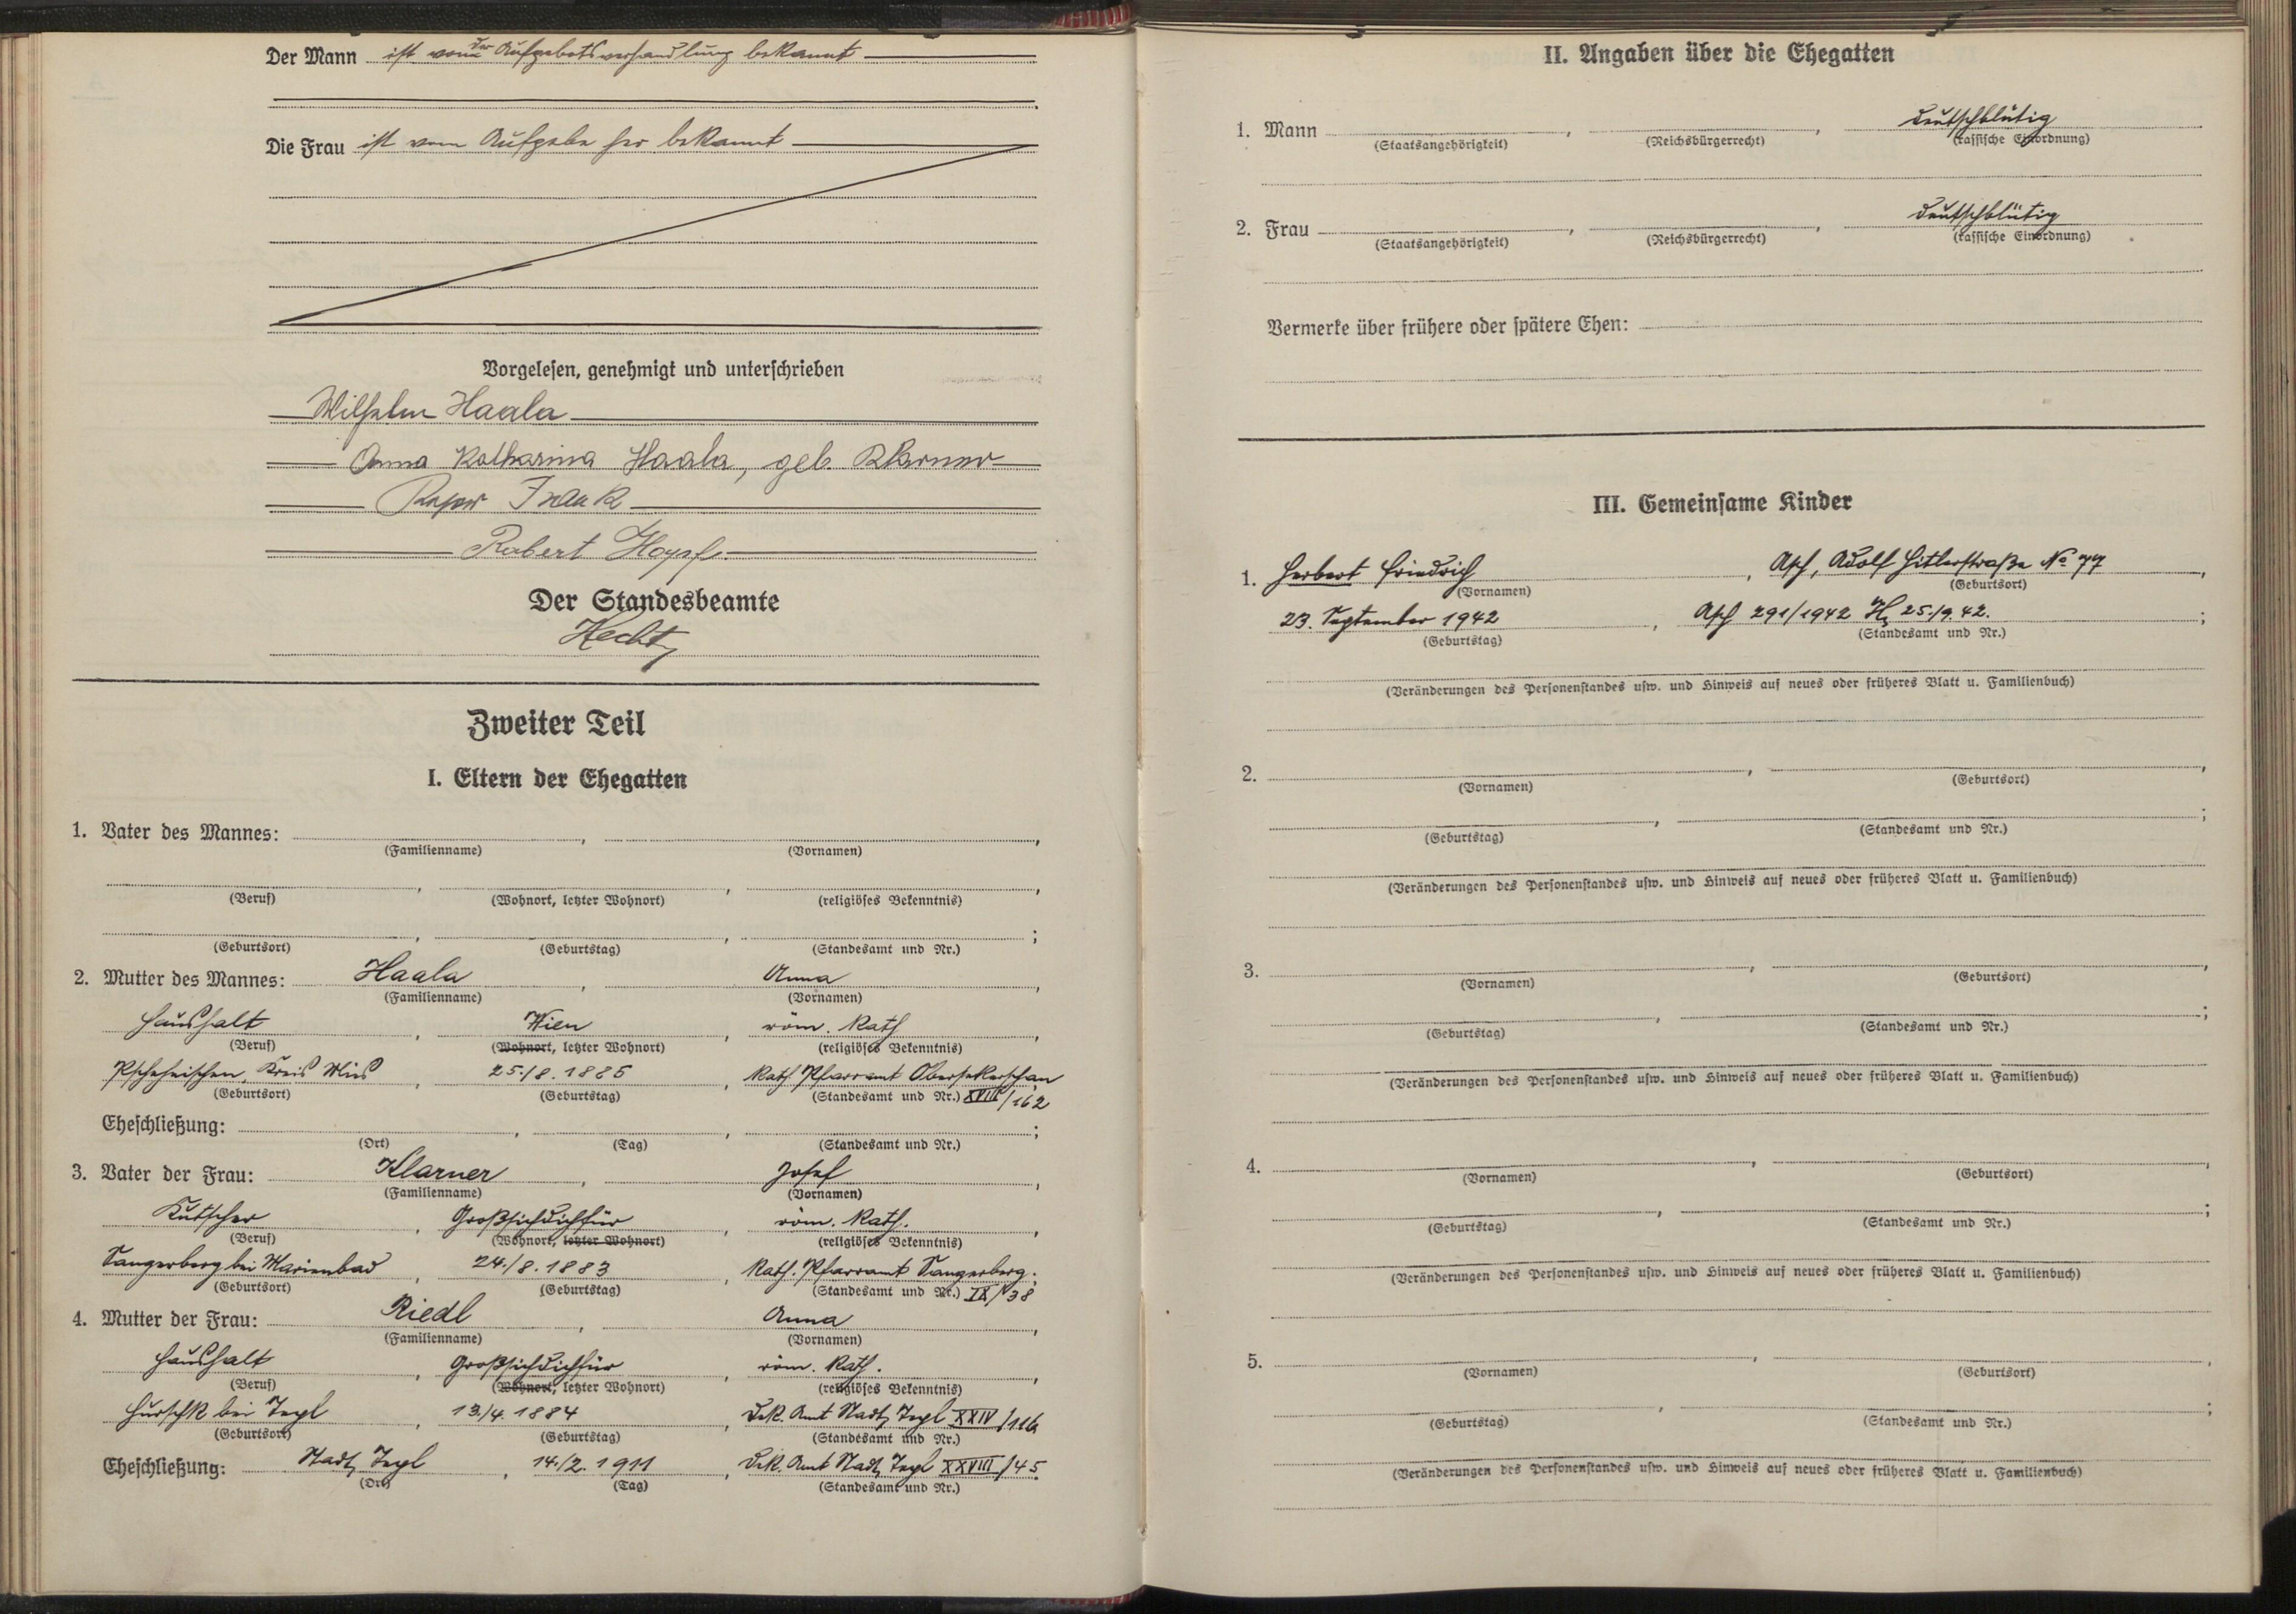 Der Mann ist von der Aufgebotsverhandlung bekannt
Die Frau ist vom Aufgebote her bekannt
Vorgelesen, genehmigt und unterschrieben
Wilhelm Haala
Anna Katharina Haala, geb. Klarner
Frank
Robert Hopf
Der Standesbeamte
Hecht
Zweiter Teil
I. Eltern der Ehegatten
1. Vater des Mannes: , ,
(Familienname) (Vornamen)
(Beruf) (Wohnort, letzter Wohnort) (religiöses Bekenntnis)
(Geburtsort) (Geburtstag) (Standesamt und Nr.)
2. Mutter des Mannes: Haala , Anna ,
(Familienname) (Vornamen)
Haushalt , Wien , röm. kath ,
(Beruf) (Wohnort, letzter Wohnort) (religiöses Bekenntnis)
Pscheheischen, Kreis Mies , 25./8.1885 , Kath. Pfarramt Obersekerschan
(Geburtsort) (Geburtstag) (Standesamt und Nr.) XVIII/162
Eheschließung: , , ;
(Ort) (Tag) (Standesamt und Nr.)
3. Vater der Frau: Klarner , Josef ,
(Familienname) (Vornamen)
Kutscher , Großsichdichfür , röm. kath. ,
(Beruf) (Wohnort, letzter Wohnort) (religiöses Bekenntnis)
Sangerberg bei Marienbad , 24./8.1883 , Kath. Pfarramt Sangerberg ;
(Geburtsort) (Geburtstag) (Standesamt und Nr.) IX/38
4. Mutter der Frau: Riedl , Anna ,
(Familienname) (Vornamen)
Haushalt , Großsichdichfür , röm. kath. ,
(Beruf) (Wohnort, letzter Wohnort) (religiöses Bekenntnis)
Hurschk bei Tepl , 13./4.1884 , Dek. Amt Stadt Tepl XXIV/116
(Geburtsort) (Geburtstag) (Standesamt und Nr.)
Eheschließung: Stadt Tepl , 14./2.1911 , Dek. Amt Stadt Tepl XXVIII/45
(Ort) (Tag) (Standesamt und Nr.)
II. Angaben über die Ehegatten
1. Mann , , deutschblütig
(Staatsangehörigkeit) (Reichsbürgerrecht) (rassische Einordnung)
2. Frau , , deutschblütig
(Staatsangehörigkeit) (Reichsbürgerrecht) (rassische Einordnung)
Vermerke über frühere oder spätere Ehen:
III. Gemeinsame Kinder
1. Herbert Friedrich , Asch, Adolf Hitlerstraße No 77 ,
(Vornamen) (Geburtsort)
23. September 1942 , Asch 291/1942 H, 25./9.42. ;
(Geburtstag) (Standesamt und Nr.)
(Veränderungen des Personenstandes usw. und Hinweis auf neues oder früheres Blatt u. Familienbuch)
2. , ,
(Vornamen) (Geburtsort)
, ;
(Geburtstag) (Standesamt und Nr.)
(Veränderungen des Personenstandes usw. und Hinweis auf neues oder früheres Blatt u. Familienbuch)
3. , ,
(Vornamen) (Geburtsort)
, ;
(Geburtstag) (Standesamt und Nr.)
(Veränderungen des Personenstandes usw. und Hinweis auf neues oder früheres Blatt u. Familienbuch)
4. , ,
(Vornamen) (Geburtsort)
, ;
(Geburtstag) (Standesamt und Nr.)
(Veränderungen des Personenstandes usw. und Hinweis auf neues oder früheres Blatt u. Familienbuch)
5. , ,
(Vornamen) (Geburtsort)
, ;
(Geburtstag) (Standesamt und Nr.)
(Veränderungen des Personenstandes usw. und Hinweis auf neues oder früheres Blatt u. Familienbuch)